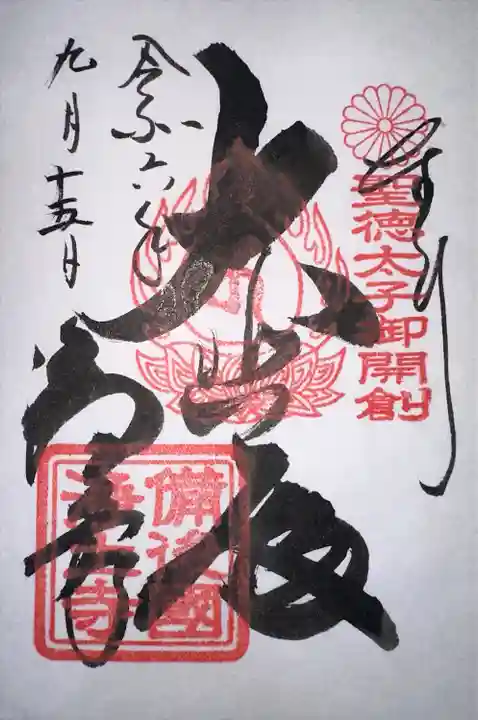 奉拝
聖徳太子御開創
大悲殿
備後國
淨土寺
令和六年
九月十五日